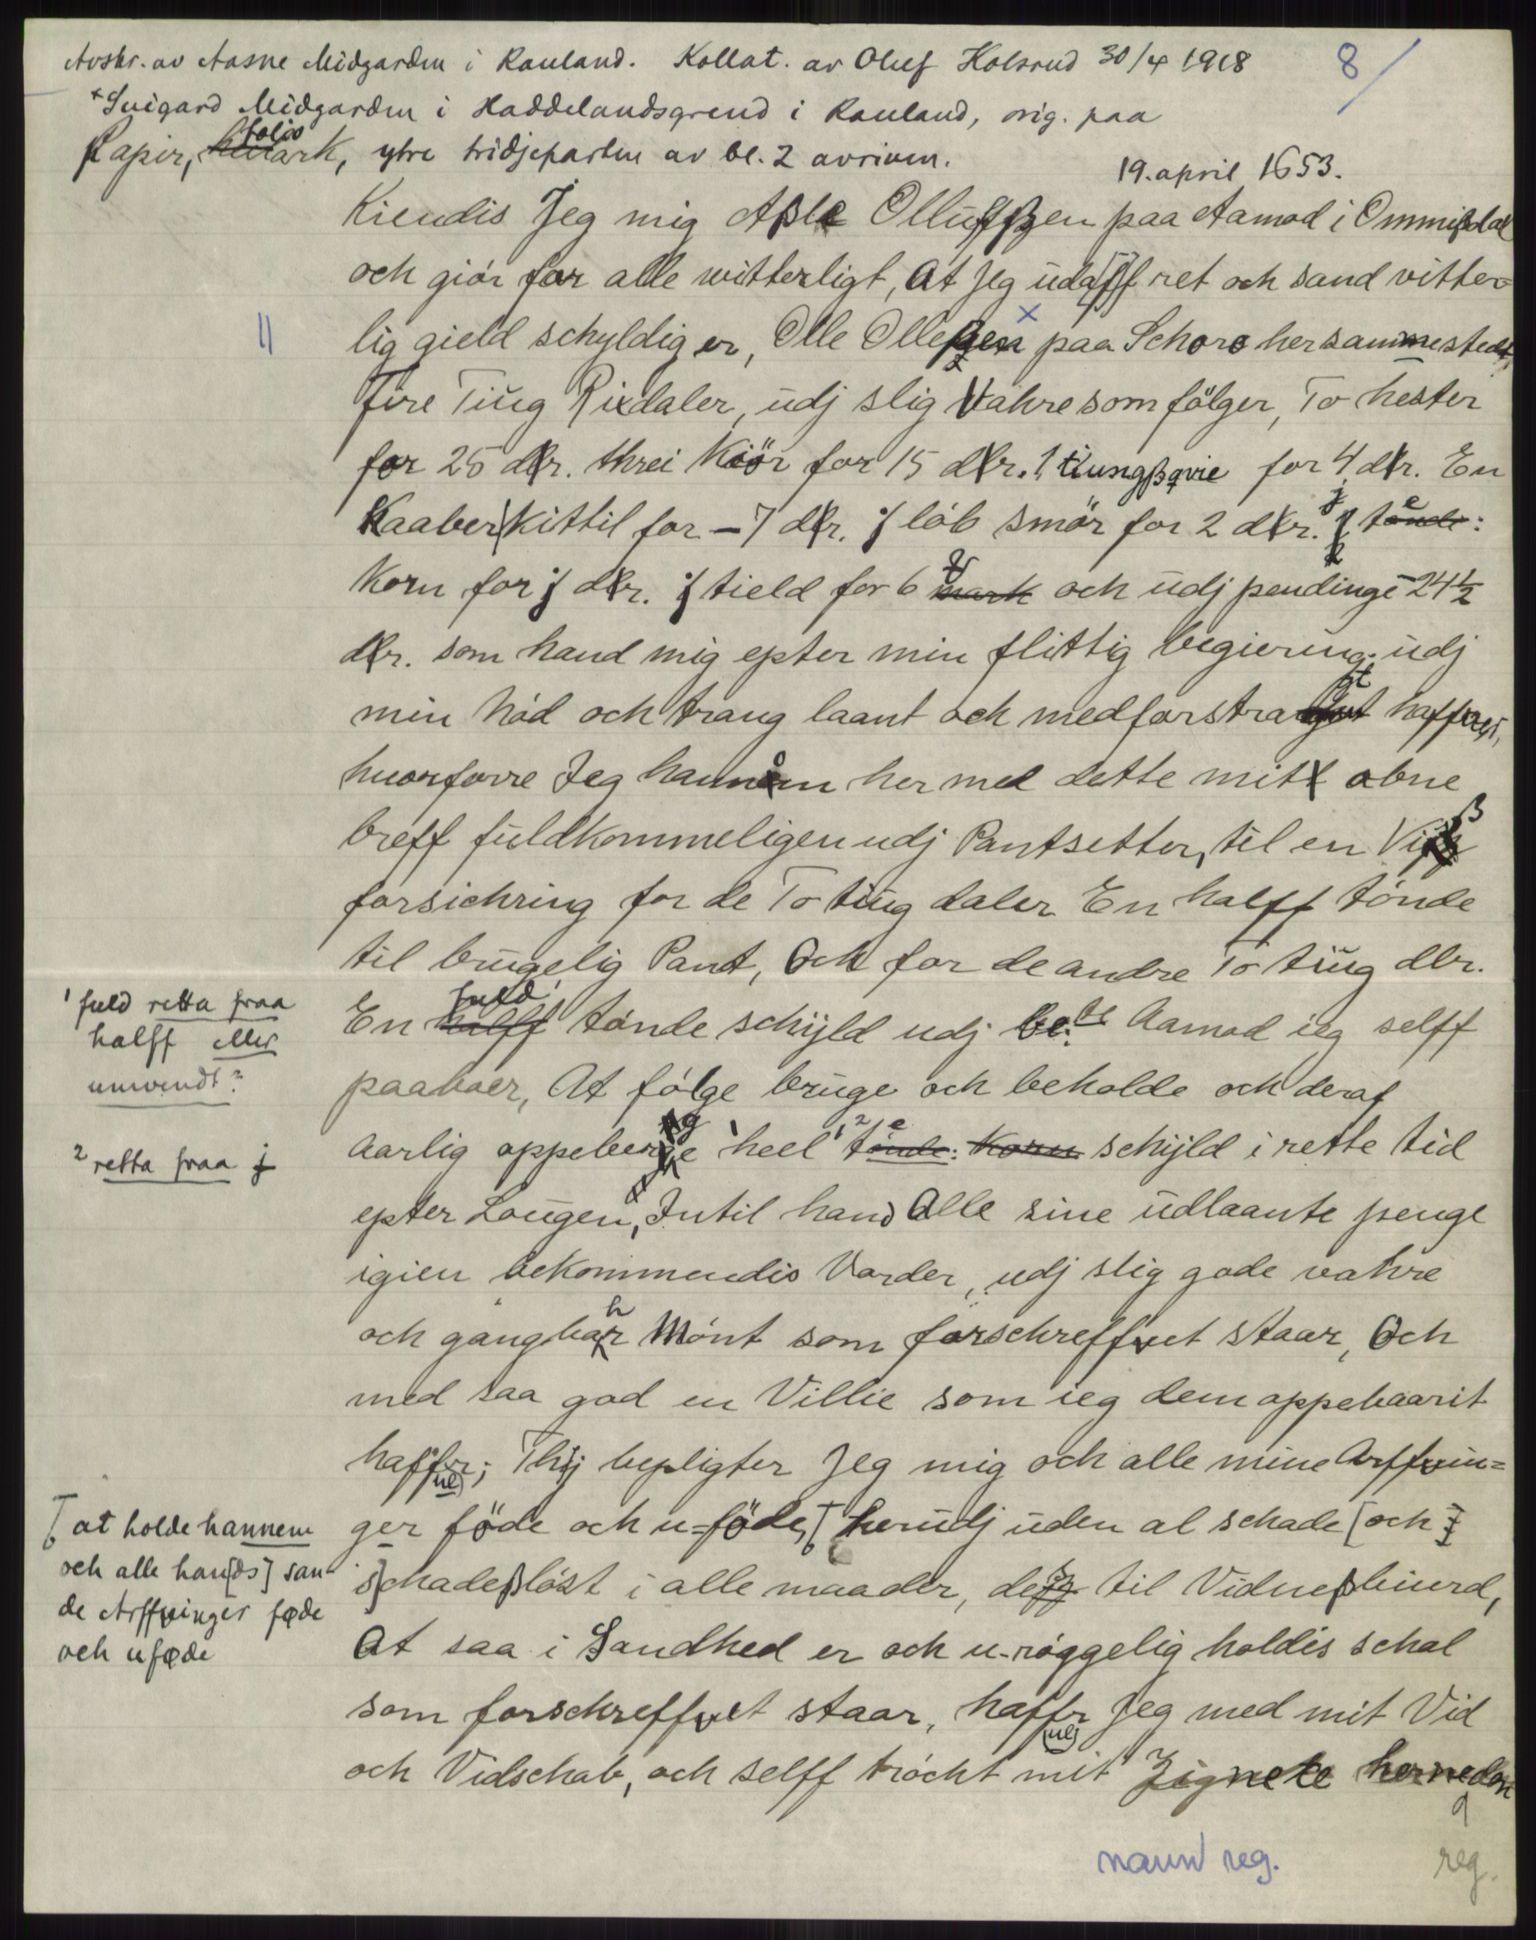 Avskr. av Aasne Midgarden i Rauland. Kollat. av Oluf Holsrud 30/4 1918
8/
*Snigard Midgarden i Haddelandsgrend i Rauland, orig. paa
Papir, folio ark, ytre tridjeparten av bl. 2 avriven.
19. april 1653.
Kiendis Jeg mig Aßle Olluffßen paa Aamod i Ommißdal
och giör for alle witterligt, At Jeg udaff ret och sand vitter=
lig gield schyldig er, Olle Olleßen x paa Schoro hersammestedt,
Fire Tiug Rixdaler, udj slig Vahre som fölger, To hester
for 25 dlr. threi Kiör for 15 dlr. 1 tiungßqvie for 4 dlr. En
Kaaber Kittil for – 7 dlr. j löb smör for 2 dlr. j tönde:
Korn for j dlr. j tield for 6 mark och udj pendinge – 24 1/2
dlr. som hand mig epter min flittig begiering udj
min Nöd och trang laant och medforstragt haffuer,
huorforre Jeg hannom her med dette mit obne
breff fuldkommeligen udj Pantsetter, til en Viß
forsichring for de To tiug daler En halff tönde
til brugelig Pant, Och for de andre To tiug dlr.
En halff fuld¹ tönde schijld udj be:te Aamod ieg selff
paaboer, At fölge bruge och beholde och deraf
Aarlig oppeberge heel² tönde: Korn schijld i rette tid
epter Lougen, Intil hand Alle sine udlaante penge
igien bekommendis Vorder, udj slig gode vahre
och gangbahr Mönt som forschreffuet staar, Och
med saa god en Villie som ieg dem oppebaarit
haffr[ue]; Thij bepligter Jeg mig och alle mine Arffuin=
ger föde och u=föde, herudj uden al schade [och
s]chadeßlöst i alle maader, deß til Vidneßbiurd,
At saa i Sandhed er och u-röggelig holdis schal
som forschreffuet staar, haffr[ue] Jeg med mit Vid
och Vidschab, och selff tröcht mit Zignete hernedon
¹ fuld retta fraa
halff eller
umvendt?
² retta fraa j
at holde hannem
och alle han[ds] san-
de Arffuinger føde
och uføde
navn reg.
reg.